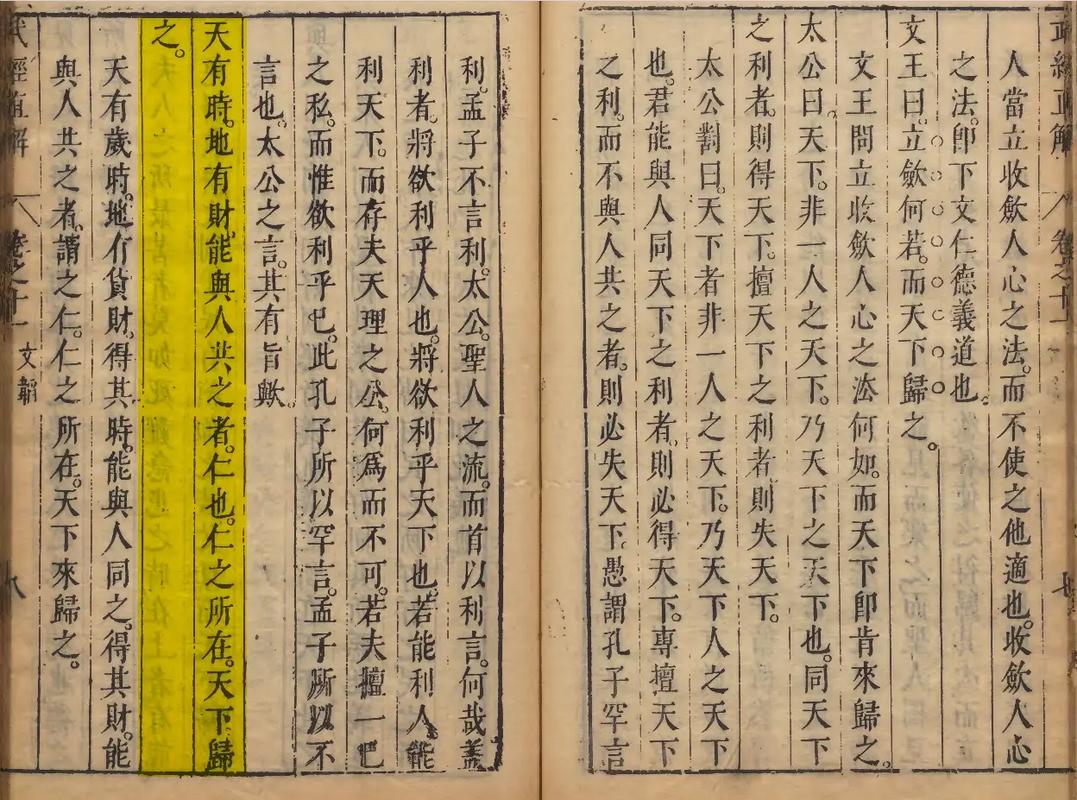 人當立收歛人心之法。而不使之他適也。收歛人心
之法。卽下文仁德義道也。
文王曰。立歛何若。而天下歸之。
文王問立收歛人心之法何如。而天下卽肯來歸之。
太公曰。天下。非一人之天下。乃天下之天下也。同天下
之利者。則得天下。擅天下之利者則失天下。
太公對曰。天下者非一人之天下。乃天下人之天下
也。君能與人同天下之利者。則必得天下。專擅天下
之利。而不與人共之者。則必失天下。愚謂孔子罕言
利。孟子不言利。太公。聖人之流。而首以利言。何哉。蓋
利者。將欲利乎人也。將欲利乎天下也。若能利人。能
利天下。而存夫天理之公。何爲而不可。若夫擅一己
之私。而惟欲利乎己。此孔子所以罕言。孟子所以不
言也。太公之言。其有旨歟。
天有時。地有財。能與人共之者。仁也。仁之所在。天下歸
之。
天有歲時。地有貨財。得其時。能與人同之。得其財。能
與人共之者。謂之仁。仁之所在。天下來歸之。
文韜
八